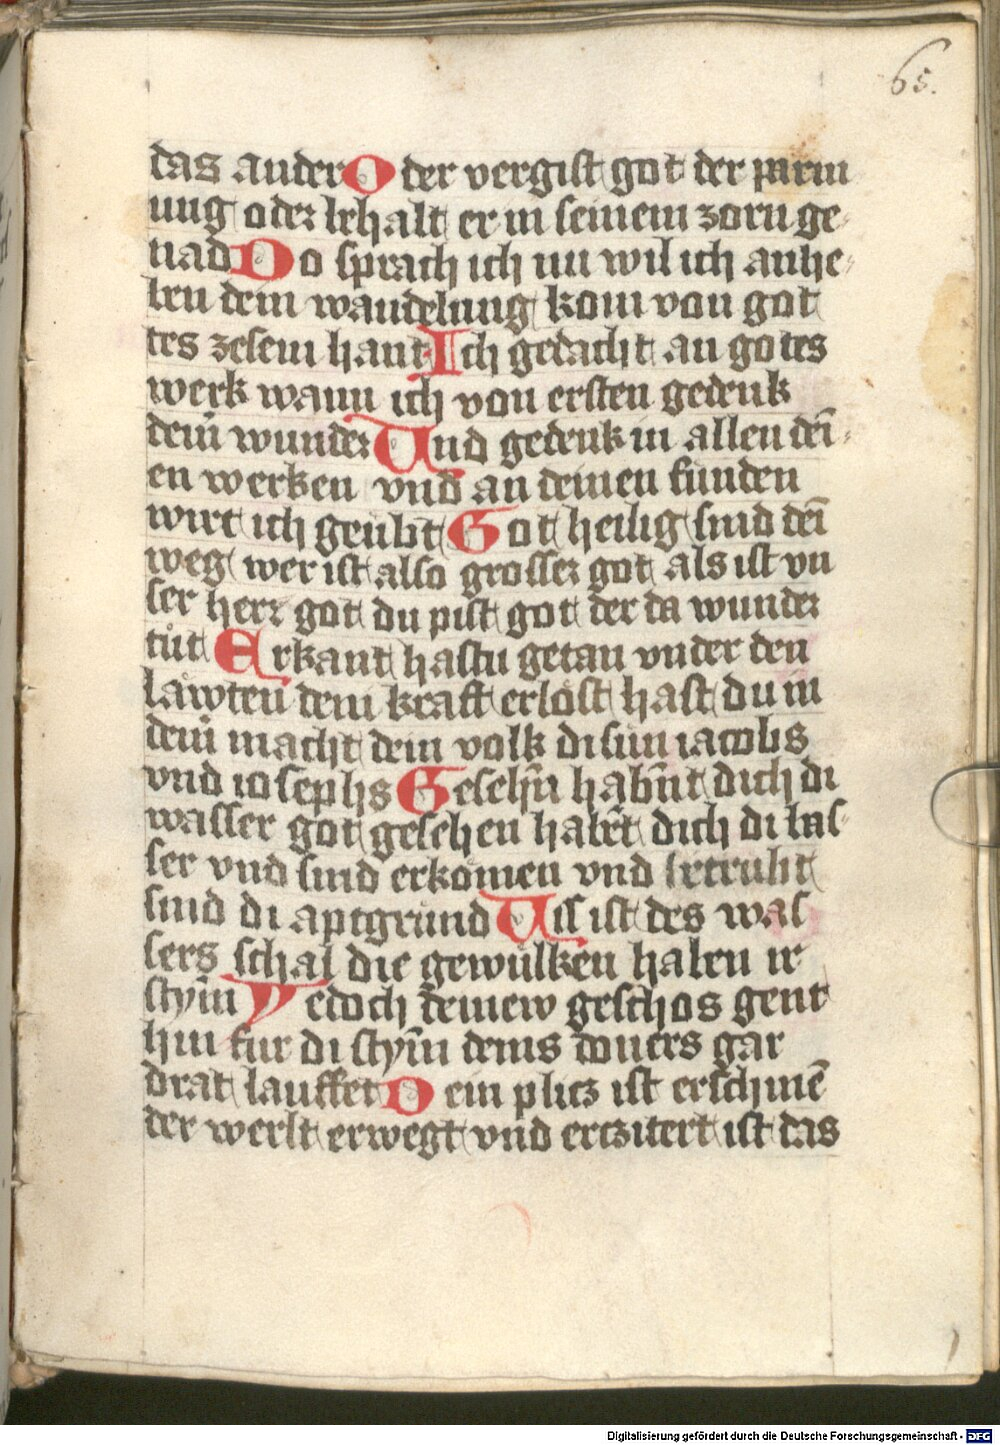 65.
das ander O der vergist got der parm
ung oder behalt er in seinem zorn ge-
nad Do sprach ich nu wil ich anhe-
ben dein wandelung kom von got
tes zesem hant Ich gedacht an gotes
werk wann ich von ersten gedenk
deiñ wunder Und gedenk in allen deĩ-
en werken vnd an deinen funden
wirt ich geubt Got heilig sind deĩ
weg wer ist also grosser got als ist vn
ser herr got du pist got der da wunder
tut Erkant hastu getan vnder den
läwten dein kraft erlöst hast du in
deiñ macht dein volk di sün iacobs
vnd iosephs Gesehñ habñt dich di
wasser got gesehen habñt dich di bas-
ser vnd sind erkomen vnd betrubt
sind di aptgründ Uil ist des was
sers schal die gewülken haben ir
stym̃ Yedoch deinew geschos gent
hin fur di stym̃ deins doners gar
drat lauffet O ein plicz ist erschinẽ
der werlt erwegt vnd erczitert ist das
Digitalisierung gefördert durch die Deutsche Forschungsgemeinschaft - DFG